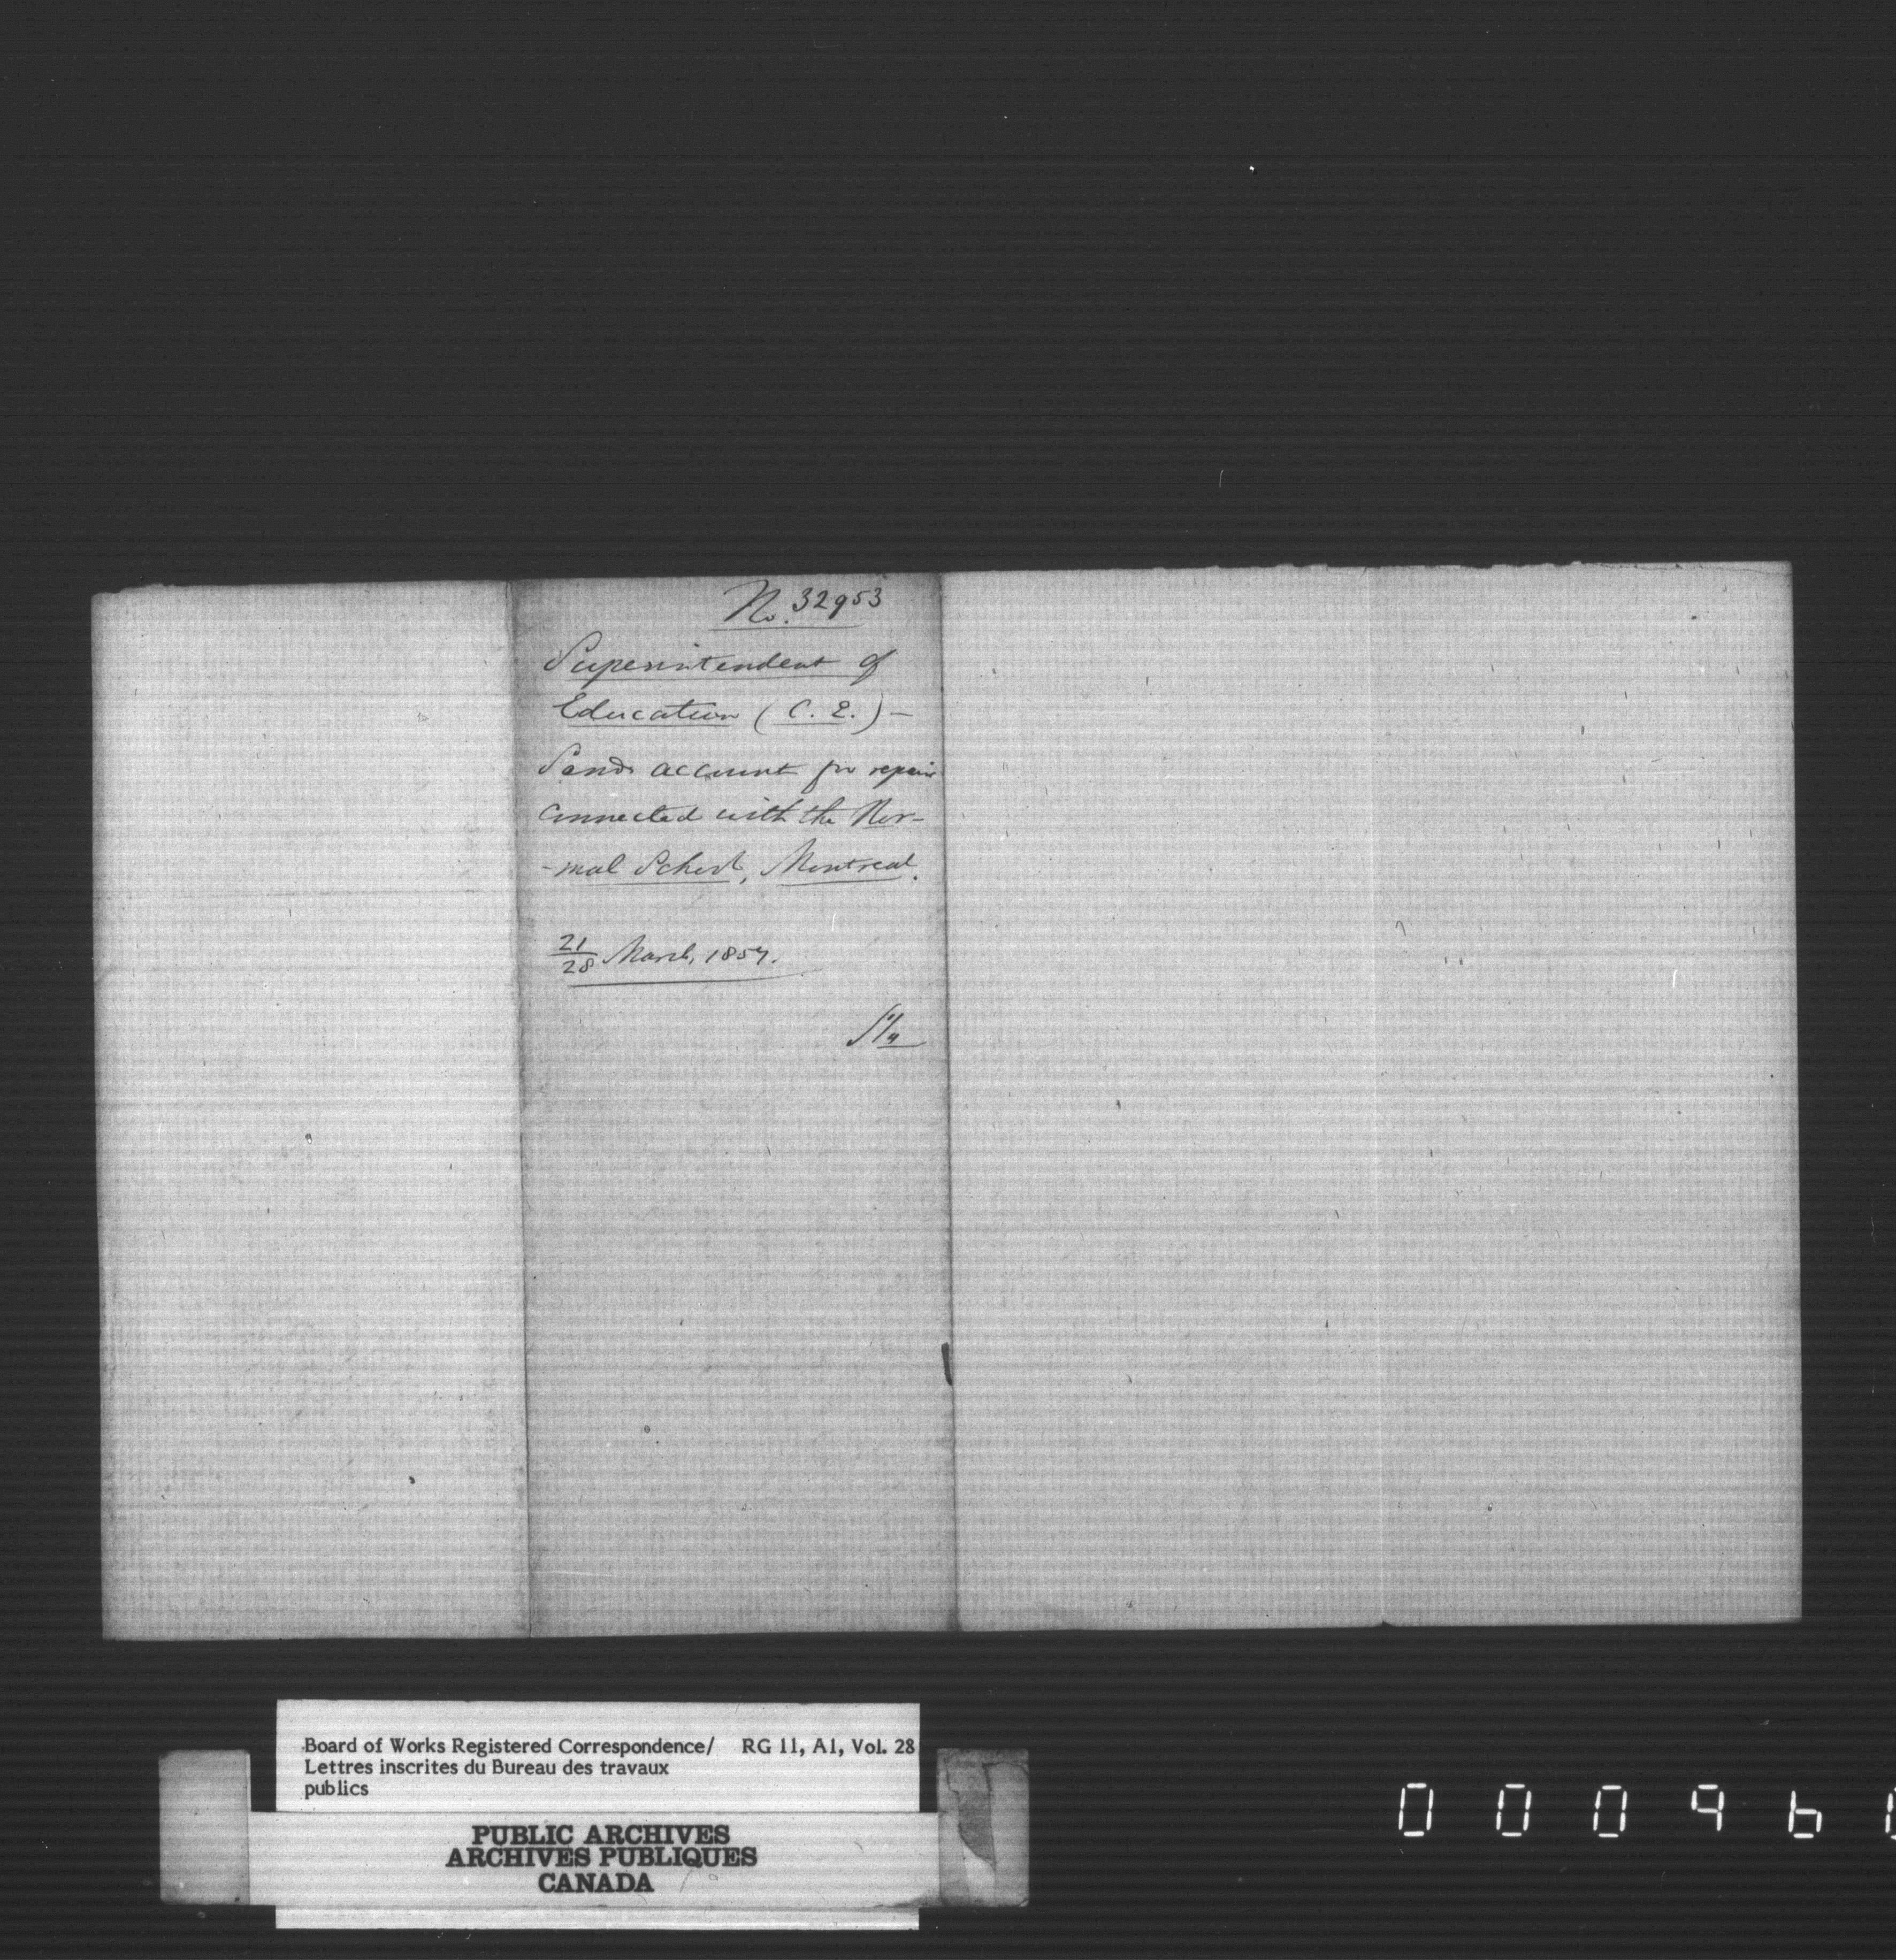 No. 32953
Superintendent of
Education (C. E.) –
Sends account for repairs
connected with the Nor-
-mal School, Montreal.
21/28 March, 1857.
Board of Works Registered Correspondence/ RG 11, A1, Vol. 28
Lettres inscrites du Bureau des travaux
publics
PUBLIC ARCHIVES
ARCHIVES PUBLIQUES
CANADA
00096